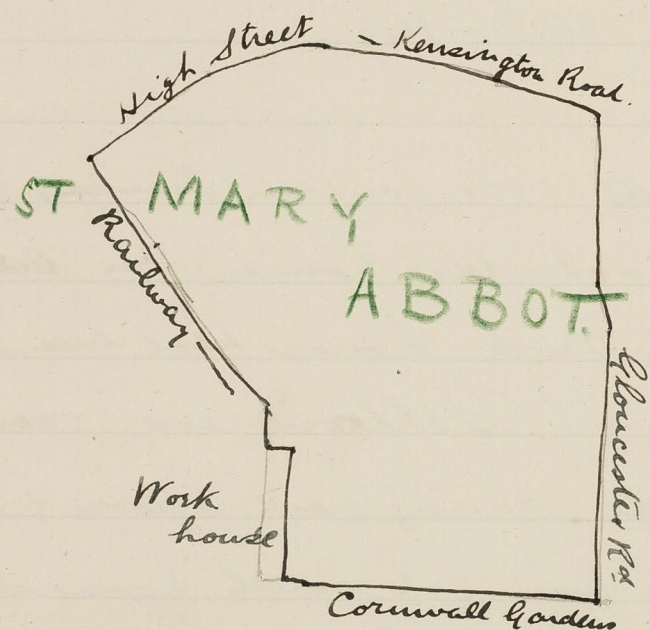 High Street – Kensington Road.
ST MARY
ABBOT.
Railway
Gloucester Rd
Work
house
Cornwall Gardens